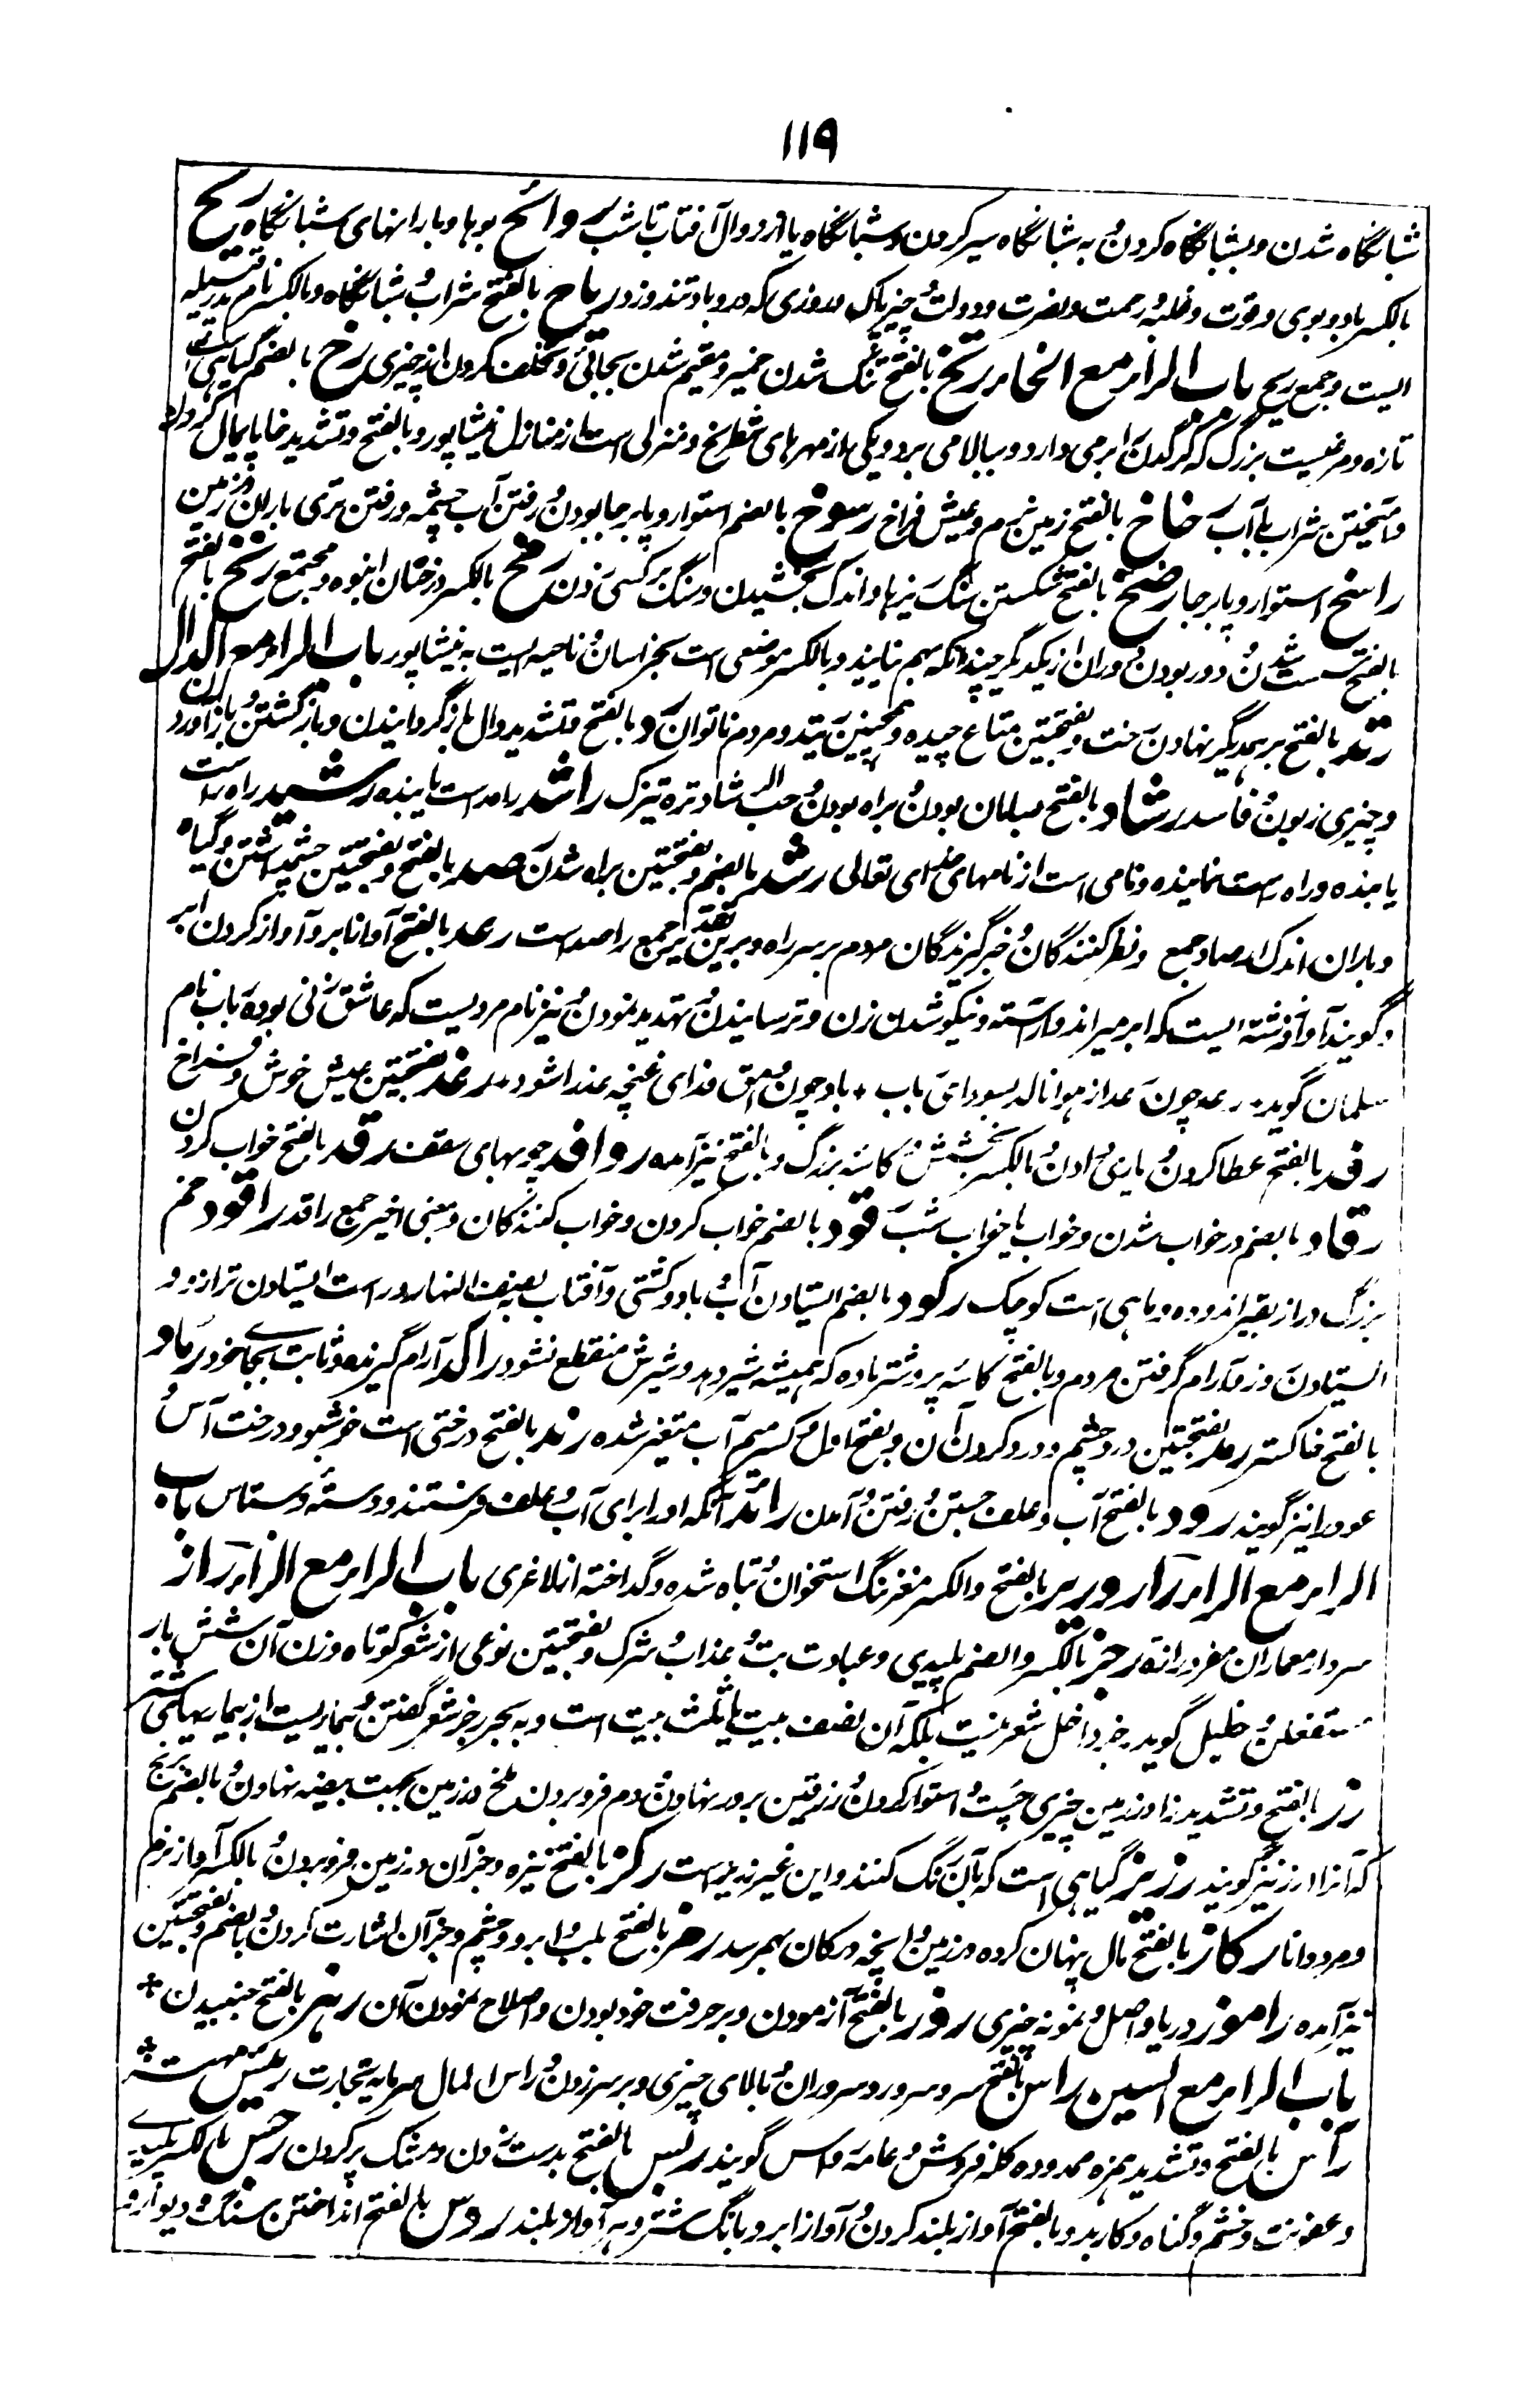 ۱۱۹
شبانگاه شدن و بشبانگاه کردن و به شبانگاه سیر کردن و شبانگاه یا از زوال آفتاب تا شب روائح بوها و بارانهای شبانگاه ریح
بالکسر باد و بوی و قوت و غلبه و رحمت و نصرت و دولت و چیز پاک و روزی که درو باد تند وزد ریاح بالفتح شراب و شبانگاه و بالکسر نام پدر قبیله
ایست و جمع ریح باب الراء مع الخاء ربخ بالفتح تنگ شدن خمیر و مقیم شدن بجائی و تخلف کردن از چیزی رخ بالضم گیاهی است
تازه و مرغیست بزرگ که کرگدن را برمی دارد و ببالا می برد و یکی از مهرهای شطرنج و منزلی است از منازل نیشاپور و بالفتح و تشدید خا پایمال کردن
و آمیختن شراب با آب رخاخ بالفتح زمین نرم و عیش فراخ رسوخ بالضم استوار و پابرجا بودن و رفتن آب چشمه و رفتن تری باران در زمین
راسخ استوار و پابرجا رضخ بالفتح شکستن سنگ ریزها و اندک بخشیدن و سنگ بر کسی زدن رمخ بالکسر درختان انبوه و مجتمع رنخ بالفتح
بالفتح سست شدن و دور بودن دو ران از یکدیگر چنانکه بهم نیایند و بالکسر موضعی است بخراسان و ناحیه ایست به نیشاپور باب الراء مع الدال
رثد بالفتح بر همدیگر نهادن رخت و بفتحتین متاع چیده و همچنین رثید و مردم ناتوان رد بالفتح و تشدید دال باز گردانیدن و باز گشتن و باز آوردن
و چیزی زبون و فاسد رشاد بالفتح بسامان بودن و براه بودن و حب الرشاد تره تیزک راشد راه راست یابنده رشید راه راست
یابنده و راه راست نماینده و نامی است از نامهای خدای تعالی رشد بالضم و بفتحتین براه شدن رصد بالفتح و بفتحتین چشم داشتن و گیاه
و باران اندک ارصاد جمع و نظر کنندگان و خبر گیرندگان مردم بر سر راه و برین تقدیر جمع راصد است رعد بالفتح آواز ابر و آواز کردن ابر
و گویند آواز فرشته ایست که ابر میراند و آراسته و نیکو شدن زن و ترسانیدن و تهدید نمودن و نیز نام مردیست که عاشق زنی بوده رباب نام
سلمان گوید رعد چون رعد از هوا نالد بسودای رباب باد چون وامق فدای غنچه عذرا شود رغد بفتحتین عیش خوش و فراخ
رفد بالفتح عطا کردن و یاری دادن و بالکسر بخشش و کاسه بزرگ و بالفتح نیز آمده روافد چوبهای سقف رقد بالفتح خواب کردن
رقاد بالضم در خواب شدن و خواب یا خواب شب رقود بالضم خواب کردن و خواب کنندگان و بمعنی اخیر جمع راقد راقود خم
بزرگ دراز بقیر اندوده و ماهی است کوچک رکود بالضم ایستادن آب و باد و کشتی و آفتاب بنصف النهار و راست ایستادن ترازو و
ایستادن و آرام گرفتن مردم و بالفتح کاسه پر و شتر ماده که همیشه شیر دهد و شیرش منقطع نشود راکد آرام گیرنده و ثابت بجای خود رماد
بالفتح خاکستر رمد بفتحتین درد چشم و درد کردن آن و بفتح اول و کسر میم آب متغیر شده رند بالفتح درختی است خوشبو و درخت آس و
عود را نیز گویند رود بالفتح آب و علف جستن و رفتن و آمدن رائد آنکه او را برای آب و علف فرستند و دسته دستاس باب
الراء مع الراء رار و ریر بالفتح و الکسر مغز تنک استخوان و تباه شده و گداخته از لاغری باب الراء مع الزاء راز
سردار معماران مفرد رازه رجز بالکسر و الضم پلیدی و عبادت بت و عذاب و شرک و بفتحتین نوعی از شعر کوتاه وزن آن شش بار
مستفعلن خلیل گوید رجز داخل شعر نیست بلکه آن نصف بیت یا ثلث بیت است و به بحر رجز شعر گفتن و بیماریست از بیماریهای شتر
رز بالفتح و تشدید زا در زمین چیزی چسپ و استوار کردن و زرفین بر در نهادن و دم فرو بردن ملخ در زمین بجهت بیضه نهادن و بالضم برنج
که آنرا ارز نیز گویند رزیز گیاهی است که بآن رنگ کنند و این غیر زریر است رکز بالفتح نیزه و جز آن در زمین فرو بردن و بالکسر آواز نرم
و مرد دانا رکاز بالفتح مال پنهان کرده در زمین و آنچه در کان بهم رسد رمز بالفتح بلب و ابرو و چشم و جز آن اشارت کردن و بالضم و بفتحتین
نیز آمده راموز دریا و اصل و نمونه چیزی روز بالفتح آزمودن و بر حرفت خود بودن و اصلاح نمودن آن رهز بالفتح جنبیدن
باب الراء مع السین راس بالفتح سر و سرور و سروران و بالای چیزی و بر سر زدن و راس المال سرمایه تجارت رئیس مهتر
رآس بالفتح و تشدید همزه ممدوده کله فروش و عامه رواس گویند ربس بالفتح بدست زدن و مشک پر کردن رجس بالکسر پلیدی
و عفونت و خشم و گناه و کار بد و بالفتح آواز بلند کردن و آواز ابر و بانگ شتر و به آواز بلند ردس بالفتح انداختن سنگ و دیوار و